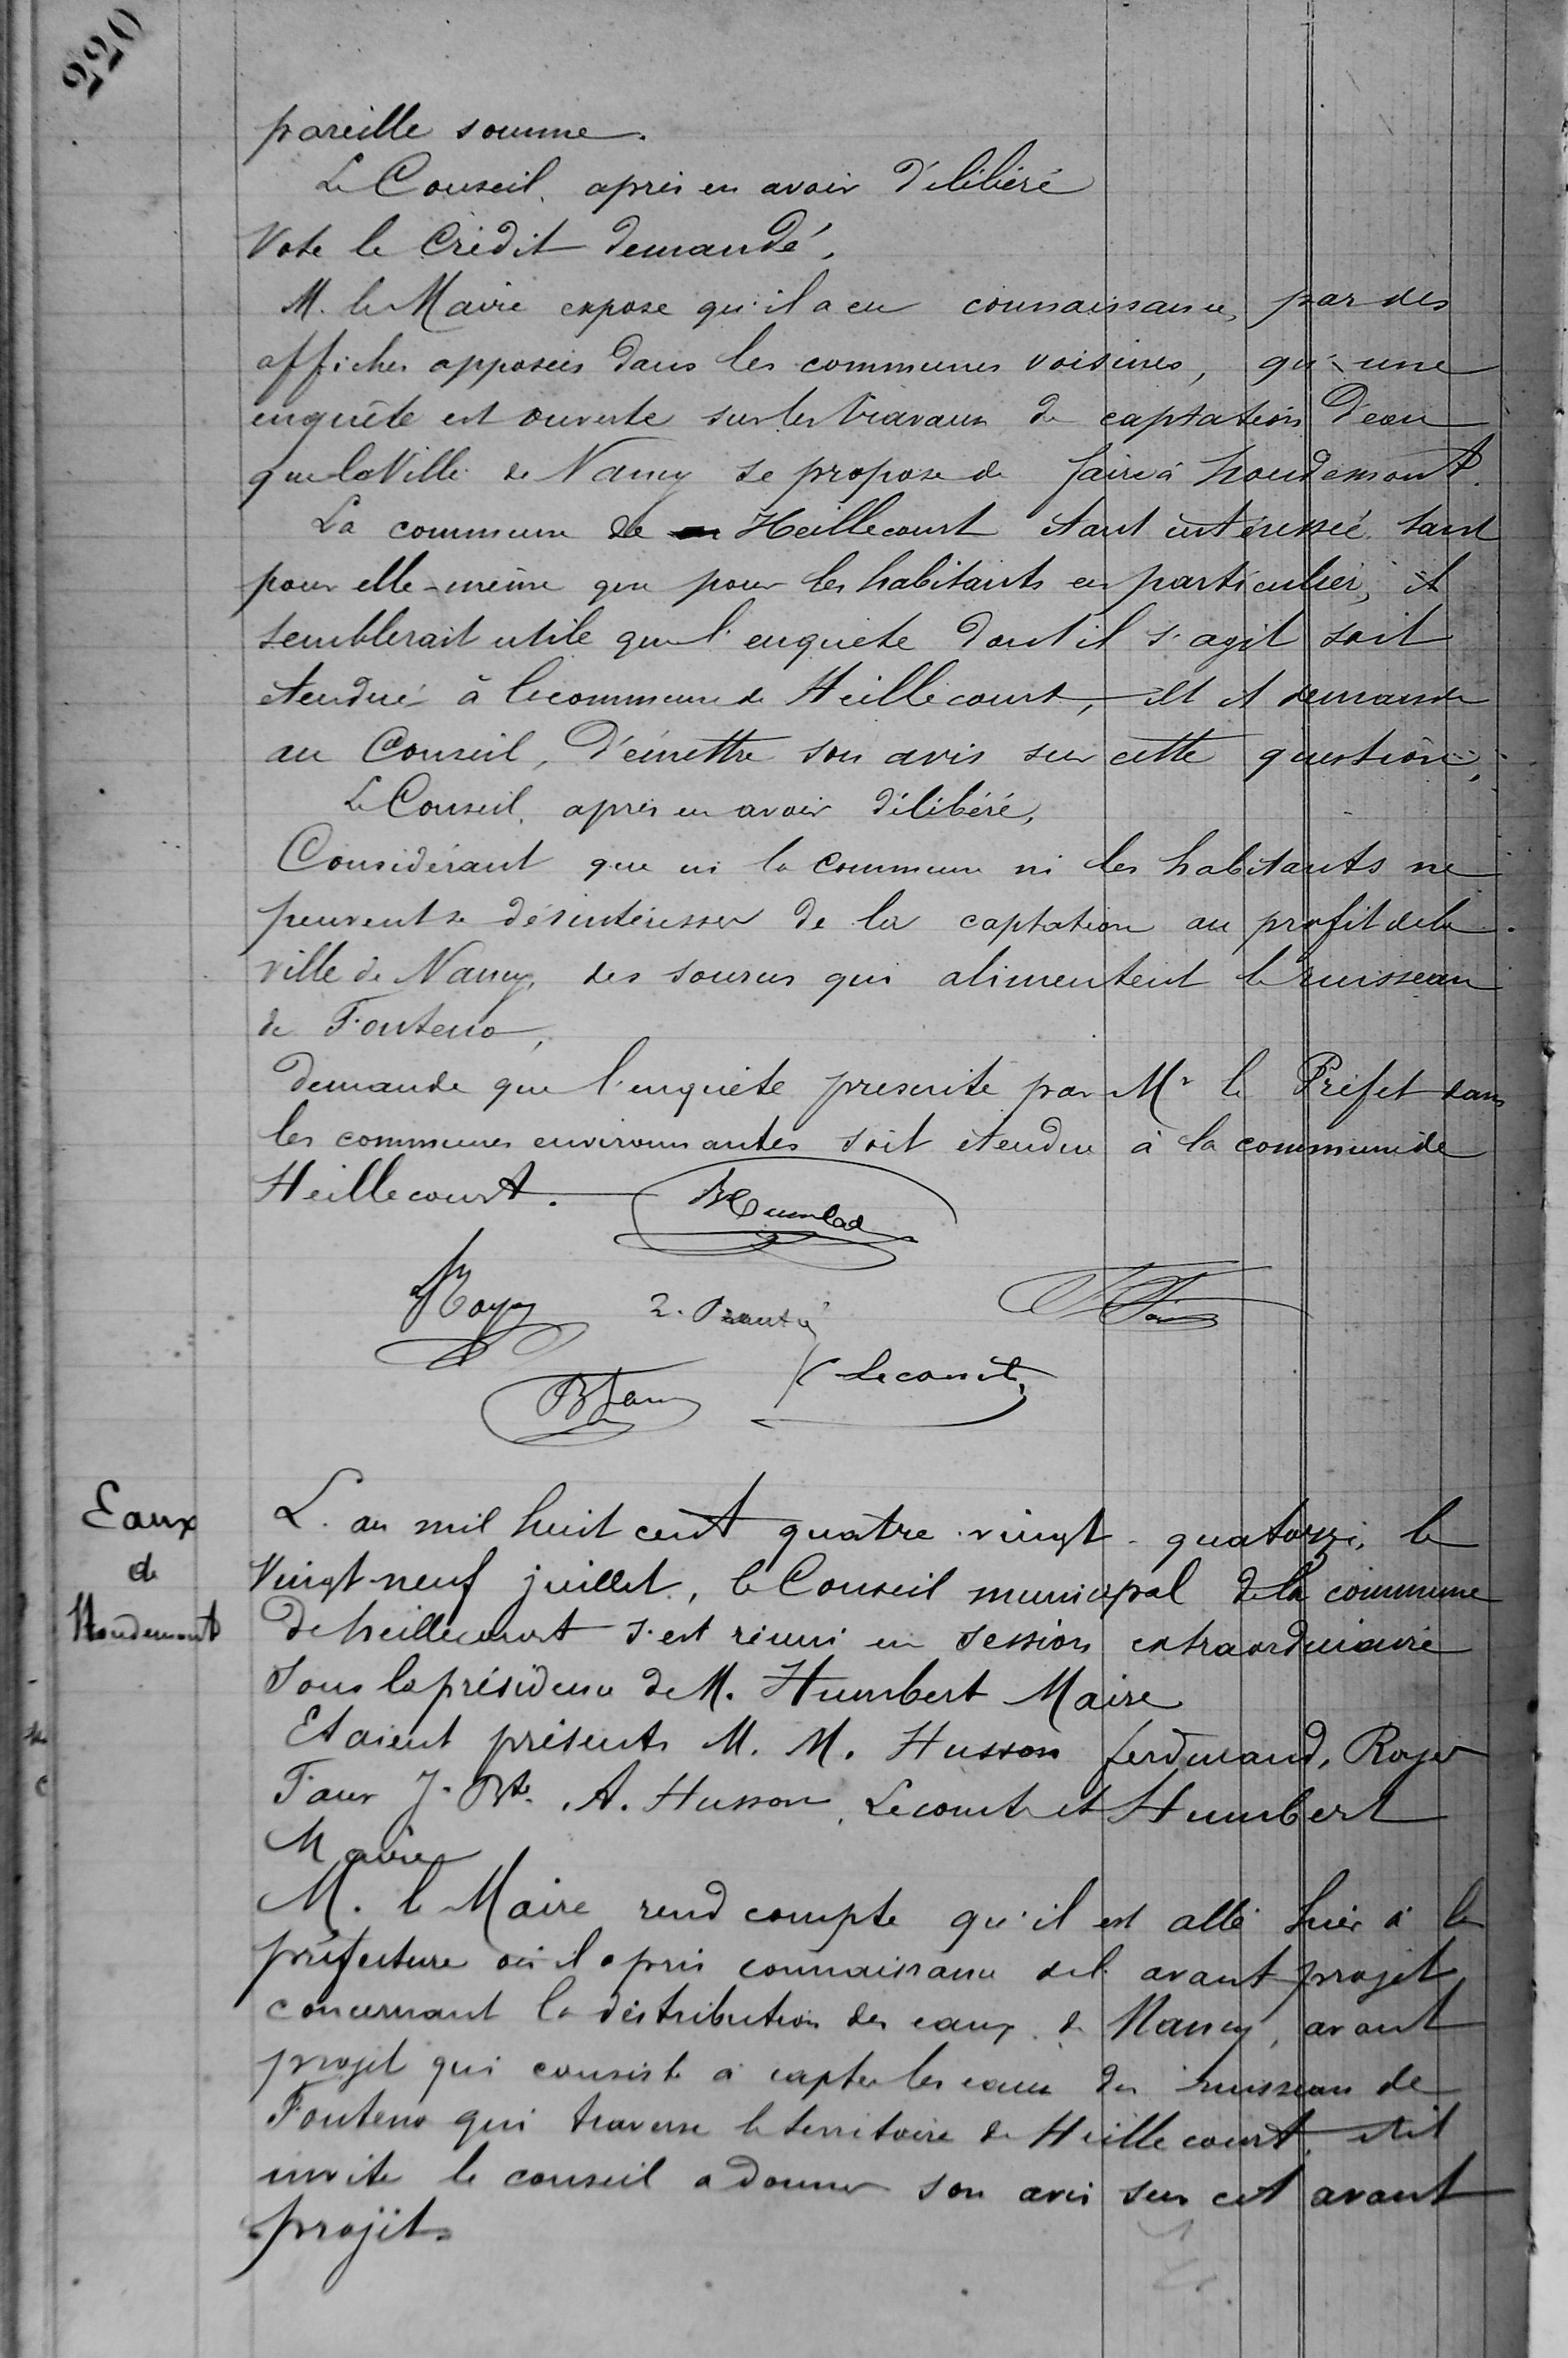 220
pareille somme.
Le Conseil, après en avoir délibéré
Vote le Crédit demandé.
M. le Maire expose qu'il a eu connaissance, par des
affiches apposées dans les communes voisines, qu'une
enquête est ouverte sur les travaux de captation d'eau
que la Ville de Nancy se propose de faire à houdemont.
La commune de Heillecourt étant intéressée tant
pour elle-même que pour les habitants en particulier, il
semblerait utile que l'enquête dont il s'agit soit
étendue à la commune de Heillecourt, et il demande
au Conseil, d'émettre son avis sur cette question;
Le Conseil, après en avoir délibéré,
Considérant que ni la commune ni les habitants ne
peuvent se désintéresser de la captation au profit de la
ville de Nancy, des sources qui alimentent le ruisseau
de Fonteno,
Demande que l'enquête prescrite par Mr le Préfet dans
les communes environnantes soit étendue à la commune de
Heillecourt.
Royer
Lecomte
Eaux
de
Houdemont
L'an mil huit cent quatre-vingt-quatorze, le
Vingt-neuf juillet, le Conseil municipal de la commune
de heillecourt s'est réuni en session extraordinaire
sous la présidence de M. Humbert Maire
Etaient présents M. M. Husson ferdinand, Royer
Faur J. Bte, A. Husson, Lecomte et Humbert
Maire
M. le Maire rend compte qu'il est allé hier à la
préfecture où il a pris connaissance de l'avant projet
concernant la distribution des eaux de Nancy, avant
projet qui consiste à capter les eaux du ruisseau de
Fonteno qui traverse le territoire de Heillecourt, et il
invite le conseil a donner son avis sur cet avant
projet.